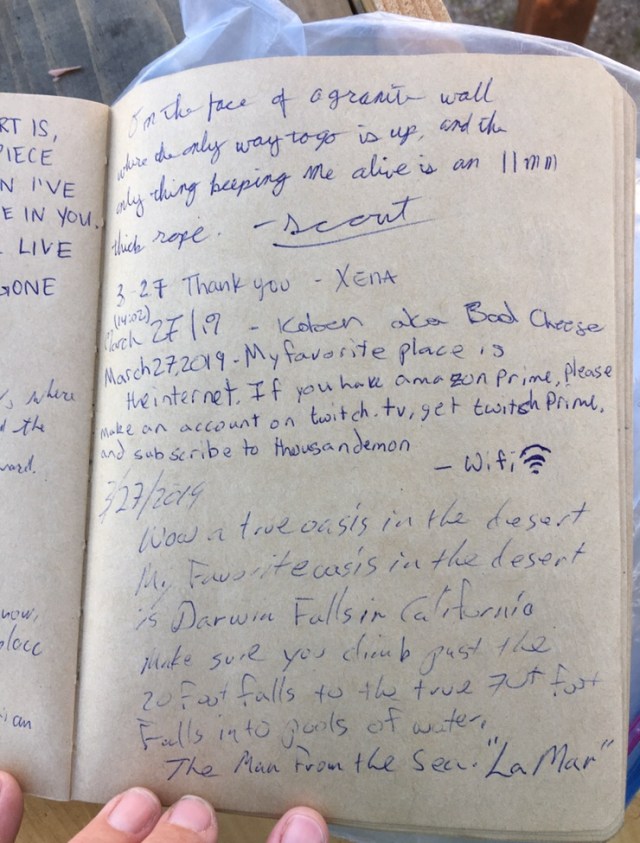 RT IS,
PIECE
N I'VE
E IN YOU.
LIVE
GONE
, where
the
ward.
now,
place
is an
On the face of a granite wall
where the only way to go is up, and the
only thing keeping me alive is an 11mm
thick rope. - Scout
3-27 Thank you - XENA
(14:02)
March 27/19 - aka Bad Cheese
March 27, 2019 - My favorite place is
the internet. If you have amazon Prime, please
make an account on twitch.tv, get twitch Prime,
and subscribe to thousandemon
- Wifi
3/27/2019
Wow a true oasis in the desert
My Favorite oasis in the desert
is Darwin Falls in California
Make sure you climb past the
20 foot falls to the true foot
Falls into pools of water.
The Man From the Sea. "La Mar"